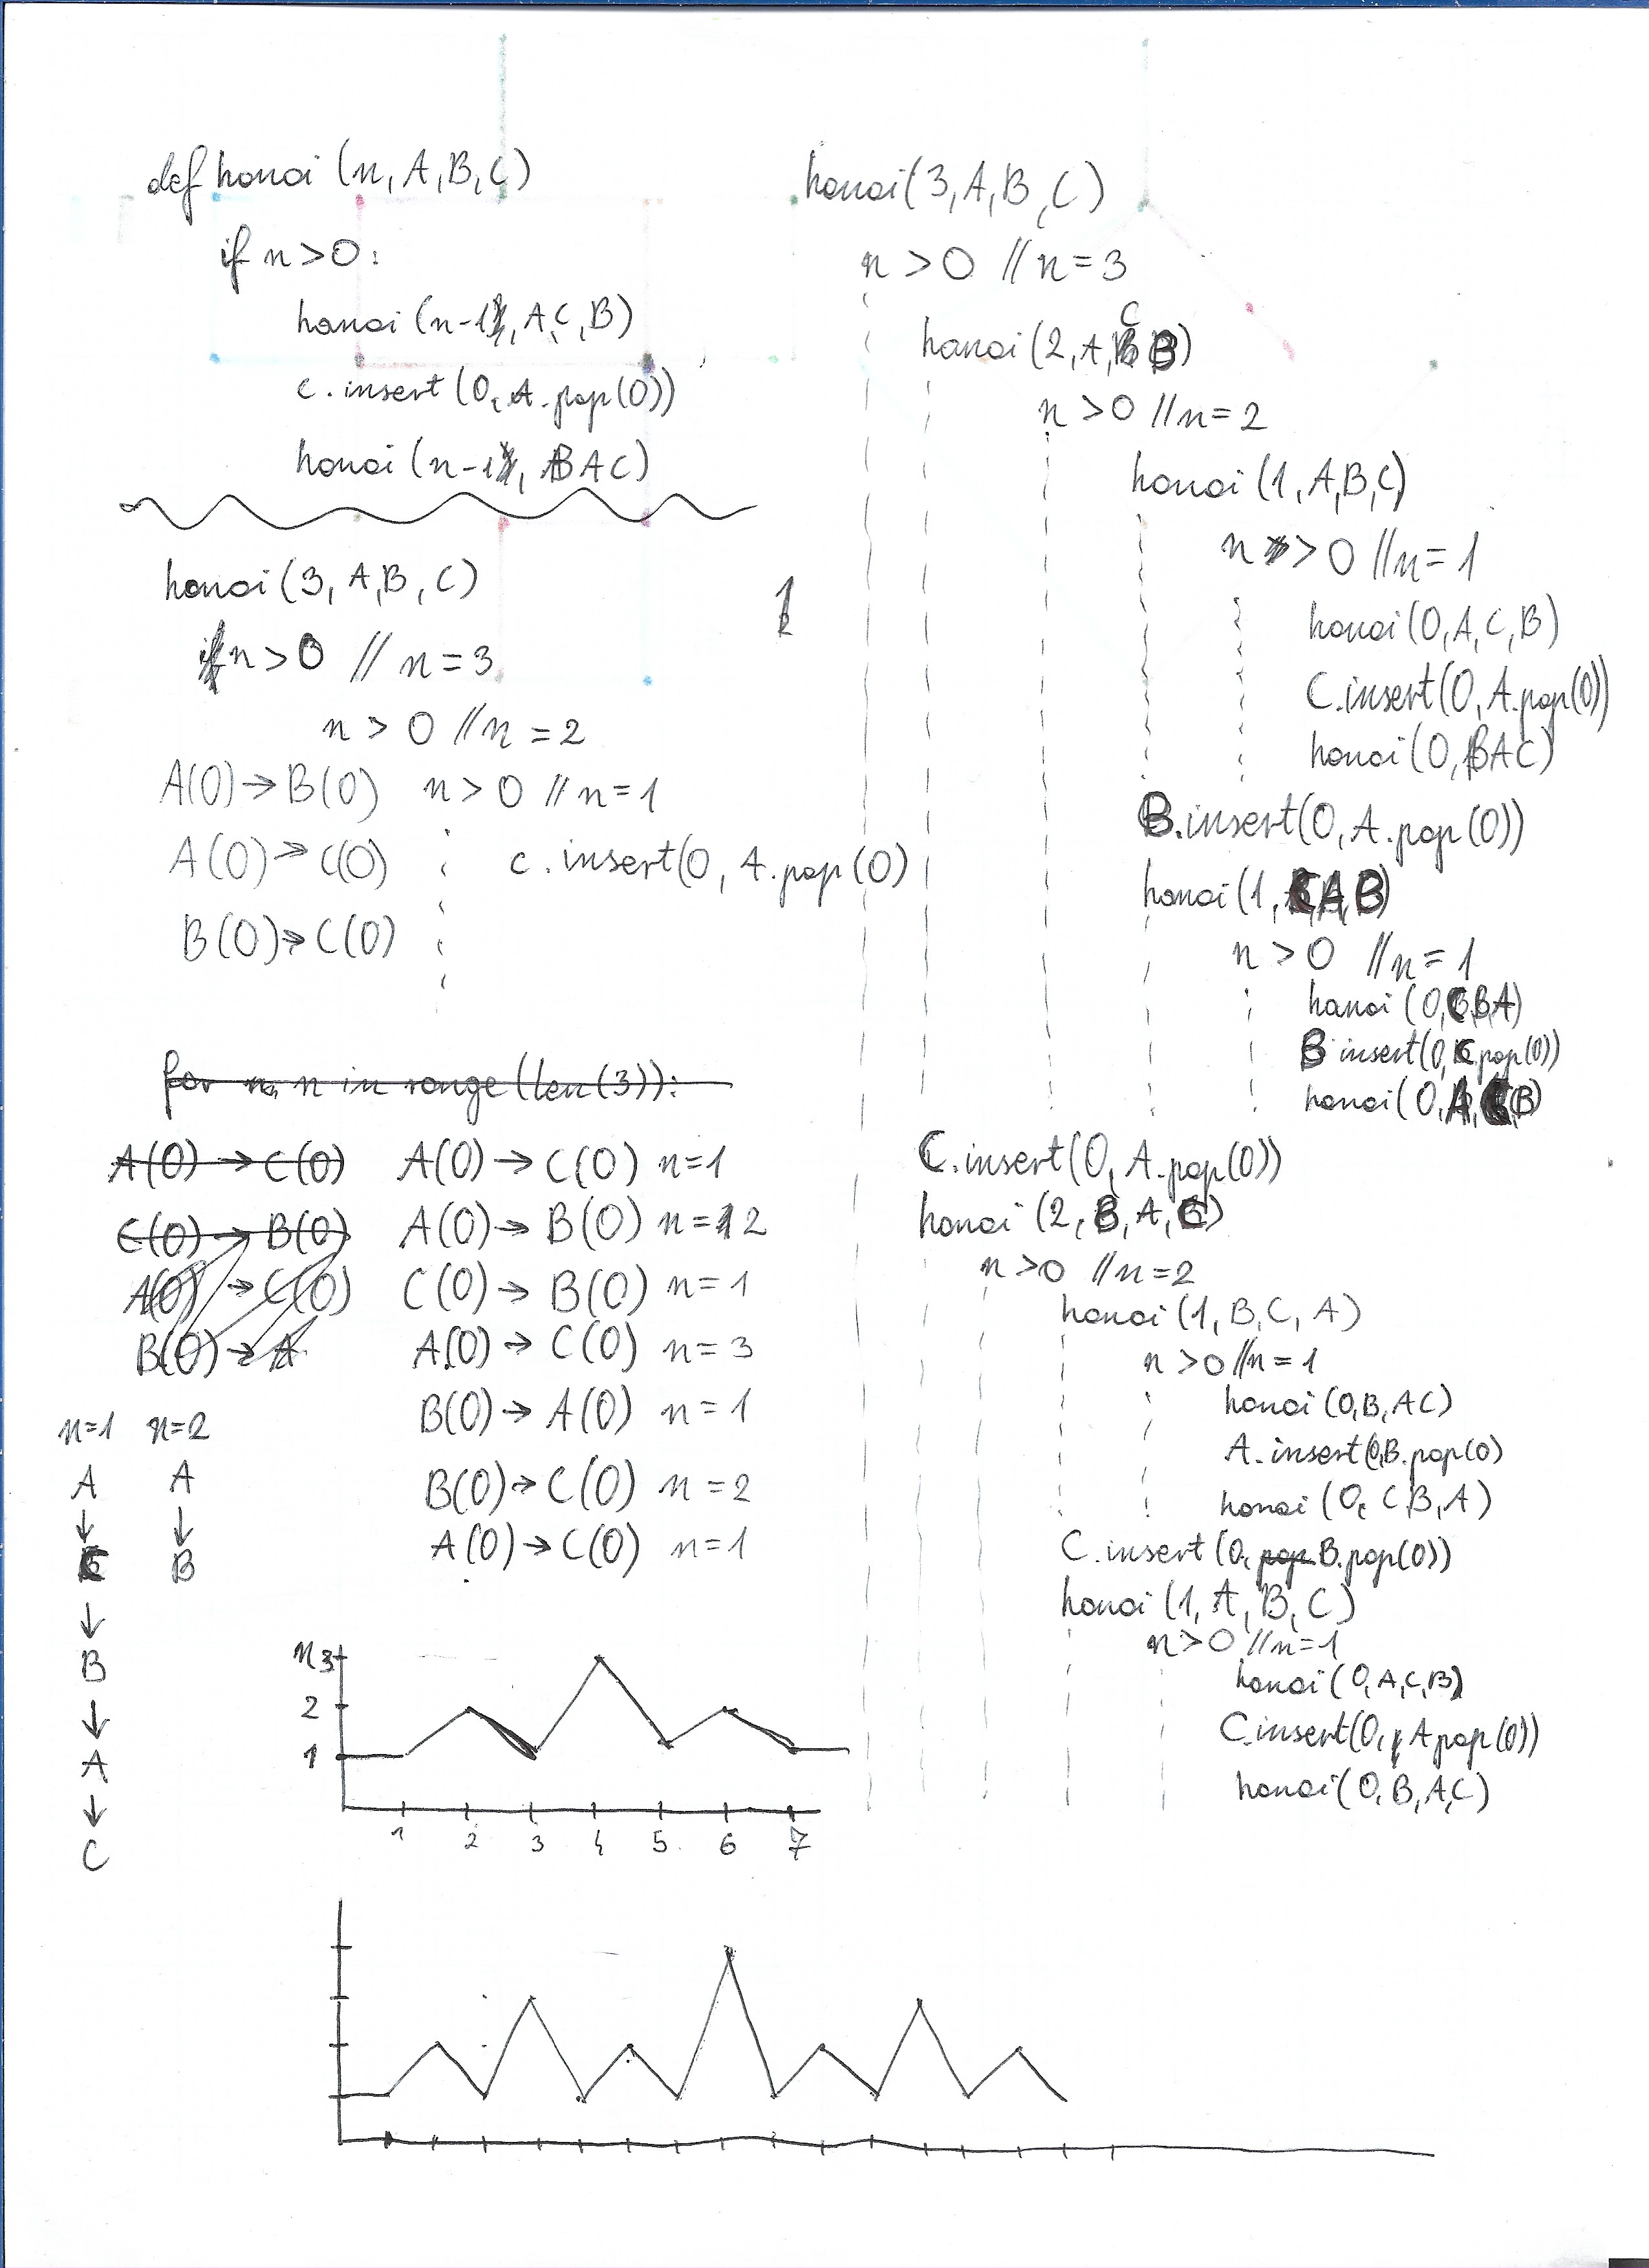 def hanoi (n, A, B, C)
if n > 0:
hanoi (n-1, A, C, B)
C.insert (0, A.pop(0))
hanoi (n-1, B A C)
hanoi (3, A, B, C)
n > 0 // n = 3
n > 0 // n = 2
A(0) → B(0) n > 0 // n = 1
A(0) → C(0) C.insert(0, A.pop(0)
B(0) → C(0)
for n, n in range (len(3)):
A(0) → C(0) A(0) → C(0) n=1
C(0) → B(0) A(0) → B(0) n=2
A(0) → C(0) C(0) → B(0) n=1
B(0) → A A(0) → C(0) n=3
B(0) → A(0) n=1
B(0) → C(0) n=2
A(0) → C(0) n=1
n=1 n=2
A A
↓ ↓
C B
↓
B
↓
A
↓
C
n 3
2
1
1 2 3 4 5 6 7
hanoi (3, A, B, C)
n > 0 // n = 3
hanoi (2, A, C B)
n > 0 // n = 2
hanoi (1, A, B, C)
n > 0 // n = 1
hanoi (0, A, C, B)
C.insert(0, A.pop(0))
hanoi (0, B A C)
B.insert(0, A.pop(0))
hanoi (1, C A, B)
n > 0 // n = 1
hanoi (0, C B A)
B insert(0, C pop(0))
hanoi (0, A C B)
C.insert(0, A.pop(0))
hanoi (2, B, A, C)
n > 0 // n = 2
hanoi (1, B, C, A)
n > 0 // n = 1
hanoi (0, B, A C)
A.insert (0, B.pop(0)
hanoi (0, C B, A)
C.insert (0, pop B.pop(0))
hanoi (1, A, B, C)
n > 0 // n = 1
hanoi (0, A, C, B)
C.insert(0, A.pop(0))
hanoi (0, B, A, C)